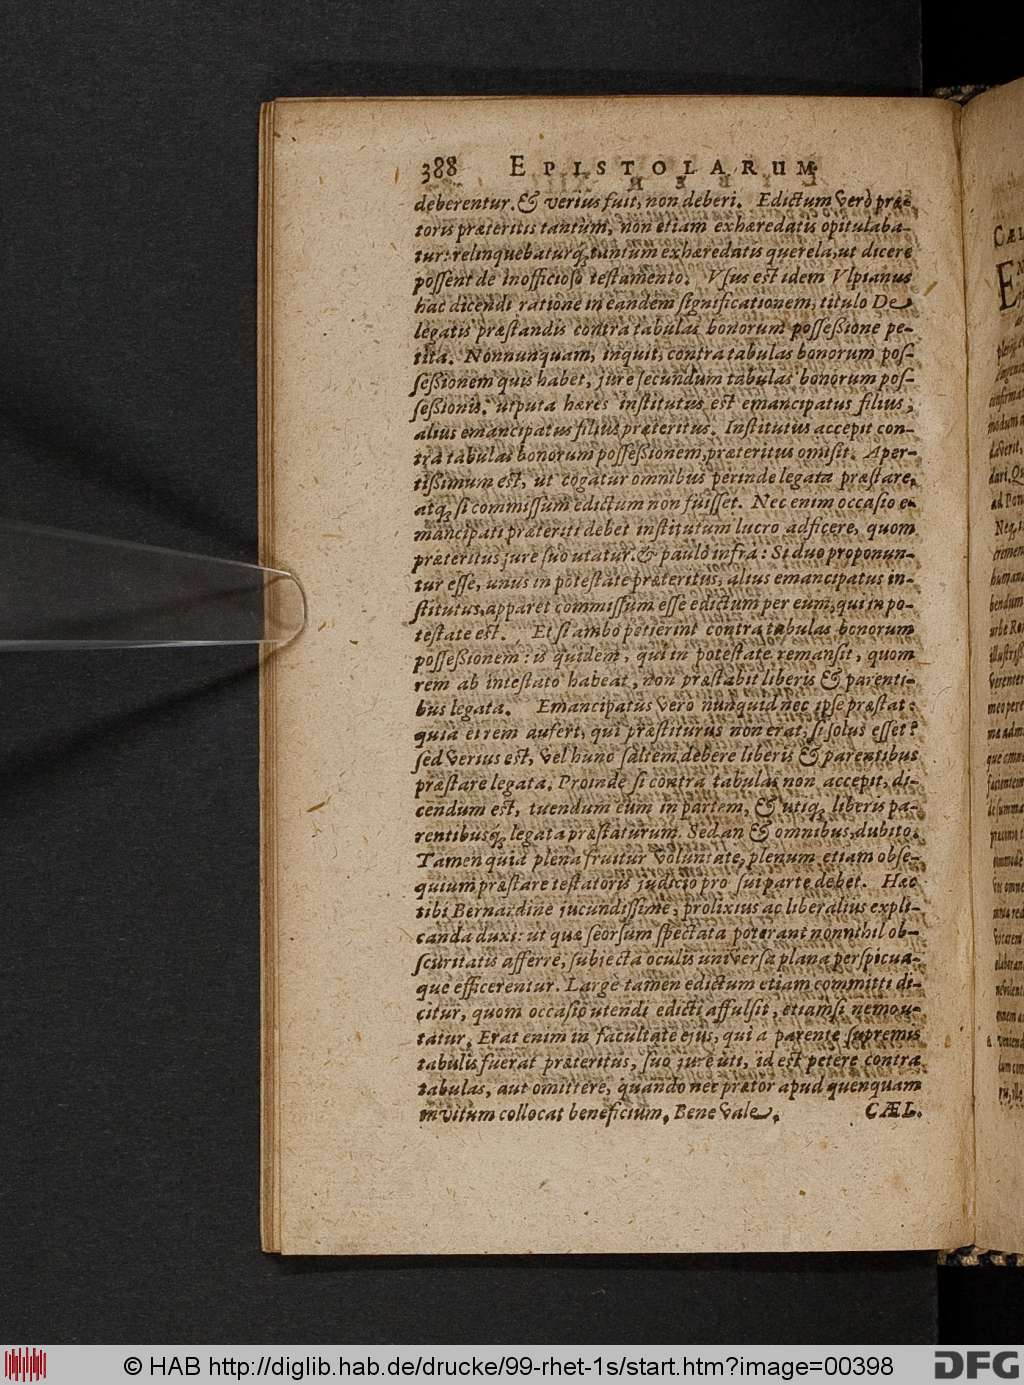 388 EPISTOLARUM
deberentur. & verius fuit, non deberi. Edictum verò præ-
toris præteritis tantùm, non etiam exhæredatis opitulaba-
tur: relinquebaturq́; tantùm exhæredatis querela, ut dicere
possent de inofficioso testamento. Vsus est idem Vlpianus
hac dicendi ratione in eandem significationem, titulo De
legatis præstandis contra tabulas bonorum possessione pe-
tita. Nonnunquam, inquit, contra tabulas bonorum pos-
sessionem quis habet, jure secundum tabulas bonorum pos-
sessionis. utputa hæres institutus est emancipatus filius,
alius emancipatus filius præteritus. Institutus accepit con-
tra tabulas bonorum possessionem, præteritus omisit. Aper-
tissimum est, ut cogatur omnibus perinde legata præstare,
atq; si commissum edictum non fuisset. Nec enim occasio e-
mancipati præteriti debet institutum lucro adficere, quom
præteritus jure suo utatur. & paulò infrà: Si duo proponun-
tur esse, unus in potestate præteritus, alius emancipatus in-
stitutus, apparet commissum esse edictum per eum, qui in po-
testate est. Et si ambo petierint contra tabulas bonorum
possessionem: is quidem, qui in potestate remansit, quom
rem ab intestato habeat, non præstabit liberis & parenti-
bus legata. Emancipatus verò nunquid nec ipse præstat:
quia ei rem aufert, qui præstiturus non erat, si solus esset?
sed verius est, vel hunc saltem debere liberis & parentibus
præstare legata. Proinde si contra tabulas non accepit, di-
cendum est, tuendum eum in partem, & utiq; liberis pa-
rentibusq́; legata præstaturum. Sed an & omnibus, dubito.
Tamen quia plena fruitur voluntate, plenum etiam obse-
quium præstare testatoris judicio pro sui parte debet. Hæc
tibi Bernardine jucundissime, prolixius ac liberalius expli-
canda duxi: ut quæ seorsum spectata poterant nonnihil ob-
scuritatis afferre, subiecta oculis universa plana perspicua-
que efficerentur. Largè tamen edictum etiam committi di-
citur, quom occasio utendi edicti affulsit, etiamsi nemo u-
tatur. Erat enim in facultate ejus, qui à parente supremis
tabulis fuerat præteritus, suo jure uti, id est petere contra
tabulas, aut omittere, quando nec prætor apud quenquam
invitum collocat beneficium. Bene vale. CÆL.
© HAB http://diglib.hab.de/drucke/99-rhet-1s/start.htm?image=00398
DFG